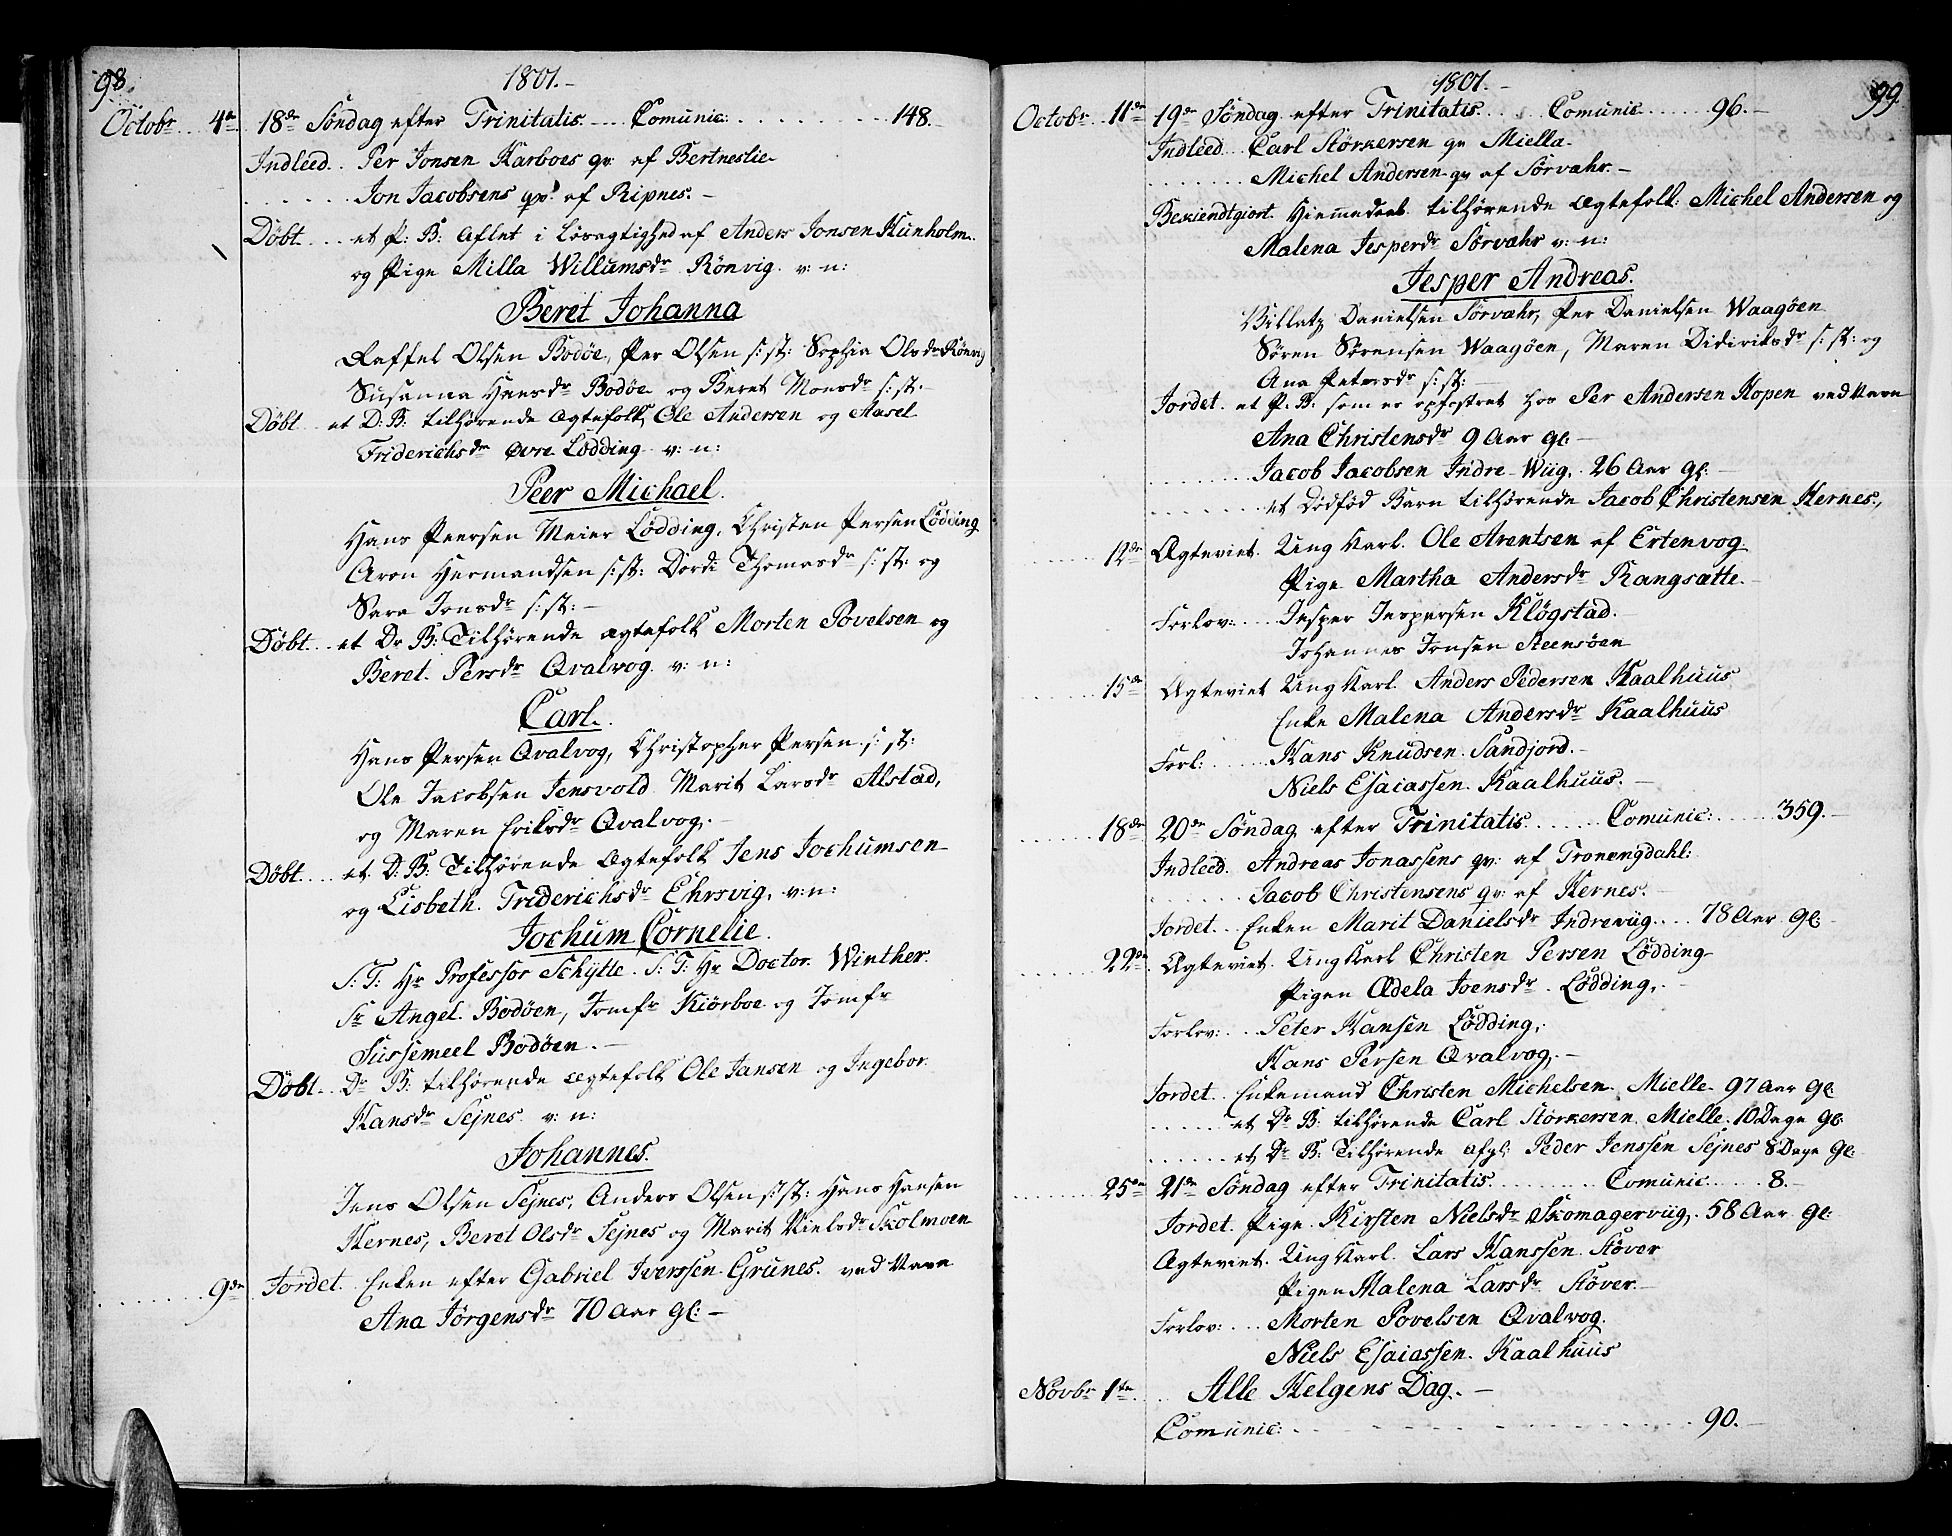 98.
1801.
Octobr 4de 18de Søndag efter Trinitatis. Comunic: 148.
Indleed. Per Jonsen Karboes qv: af Bertneslie
Jon Jacobsens qv: af Ripnes.
Døbt et P: B: aflet i Løsagtighed af Anders Jonsen Kunholm
og Pige Milla Willumsdr Rønvig. v: n:
Beret Johanna
Raffel Olsen Bodøe, Per Olsen s: st: Sophia Olsdr Rønvig
Susanna Hansdr Bodøe og Beret Monsdr s: st.
Døbt et D: B: tilhørende ægtefolk, Ole Andersen og Aasel
Friderichsdr øvre Lødding v: n:
Peer Michael.
Hans Peersen Meier Lødding, Christen Persen Lødding
Aron Hermandsen s: st: Dordi Thomasdr s: st: og
Sara Jonsdr s: st:
Døbt. et Dr B: Tilhørende ægtefolk Morten Povelsen og
Beret Persdr Qvalvog v: n:
Carl.
Hans Persen Qvalvog, Christopher Persen s: st:
Ole Jacobsen Jensvold Marit Larsdr Alstad,
og Maren Eriksdr Qvalvog.
Døbt. et D: B: Tilhørende ægtefolk Jens Jochumsen
og Lisbeth Friderichsdr Ehrsvig, v: n:
Jochum Cornelie.
S: T: Hr Professor Schytte. S: T: Hr Doctor Winther.
Sr Angel. Bodøen, Jomfr Kiørboe og Jomfr
Sussemeel Bodøen.
Døbt. Dr B: tilhørende ægtefolk Ole Jansen og Ingebor.
Hansdr Sejnes v: n:
Johannes.
Jens Olsen Sejnes, Anders Olsen s: st: Hans Hansen
Hernes, Beret Olsdr Sejnes og Marit Nielsdr Skolmoen
9de Jordet. Enken efter Gabriel Iverssen Grunes. ved Navn
Ana Jørgensdr 70 Aar gl:
99.
1801.
Octobr 11de 19de Søndag efter Trinitatis. Comunic 96.
Indleed Carl Størkersen qv Miella.
Michel Andersen qv af Sørvahr.
Bekiendtgiort Hiemmedøbt tilhørende ægtefolk: Michel Andersen og
Malena Jesperdr Sørvahr v: n:
Jesper Andreas.
Danielsen Sørvahr, Per Danielsen Waagøen
Søren Sørensen Waagøen, Maren Didiriksdr s: st: og
Ana Petersdr s: st:
Jordet. et P. B: som er opfostret hos Per Andersen Kopen ved Navn
Ana Christensdr 9 Aar gl:
Jacob Jacobsen Indre Wiig, 26 Aar gl:
et Dødfød Barn tilhørende Jacob Christensen Hernes.,
12de Ægteviet. Ung Karl. Ole Arentsen af Ertenvog
Pige Martha Andersdr Rangsætte.
Forlov: Jesper Jespersen Kløgstad.
Johannes Jonsen Steensøen
15de Ægteviet Ung Karl. Anders Pedersen Kaalhuus
Enke Malena Andersdr Kaalhuus
Forl: Hans Knudsen Sandjord.
Niels Esaiassen. Kaalhuus.
18de 20de Søndag efter Trinitatis. Comunic: 359.
Indleed. Andreas Jonassens qv: af Tronengdahl:
Jacob Christensens qv: af Hernes.
Jordet. Enken Marit Danielsdr Indrewiig. 78 Aar gl:
22de Ægteviet. Ung Karl Christen Persen Lødding
Pigen Ædela Joensdr Lødding,
Forlov: Peter Hansen Lødding,
Hans Persen Qvalvog.
Jordet. Enkemand Christen Michelsen Mielle 97 Aar gl:
et Dr B: tilhørende Carl Størkersen Mielle. 10 Dage gl:
et Dr B: Tilhørende afgl: Peder Jenssen Sejnes 8 Dage gl:
25de 21de Søndag efter Trinitatis. Comunic 8.
Jordet. Pige Kirsten Nielsdr Skomagerviig, 58 Aar gl:
Ægteviet. Ung Karl. Lars Hanssen Støver
Pigen Malena Larsdr Støver.
Forlov: Morten Povelsen Qvalvog.
Niels Esaiassen. Kaalhuus
Novbr 1te Alle Helgens Dag.
Comunic: 90.